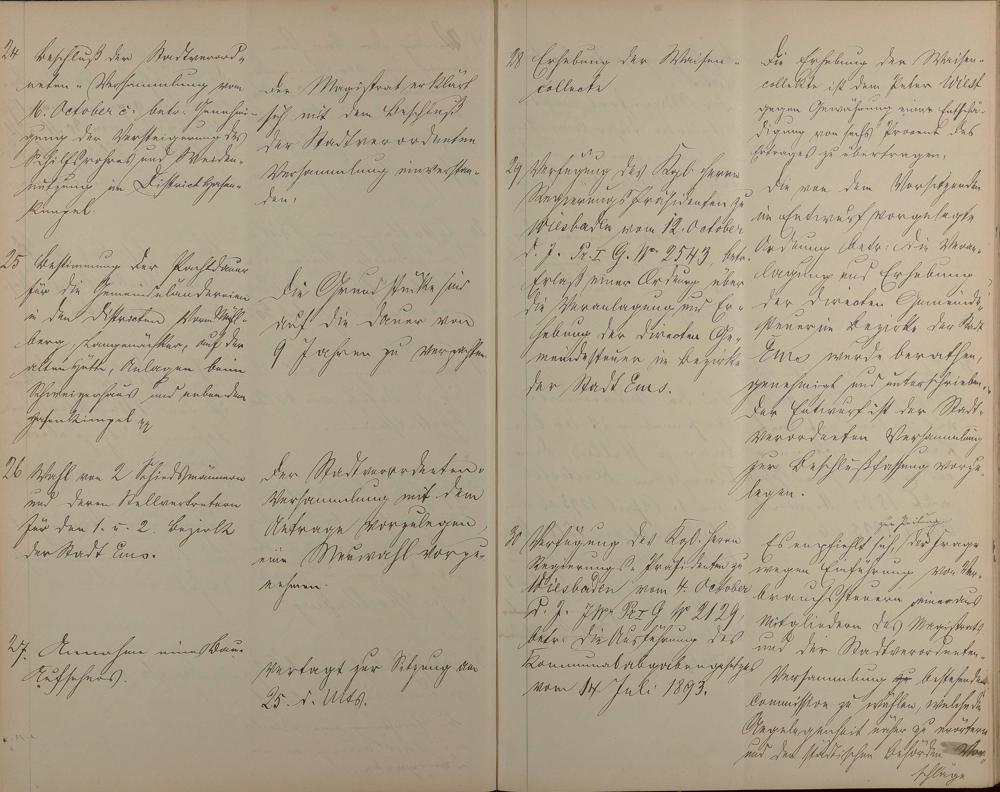 24 Beschluß der Stadtverord-
neten-Versammlung vom
16. October c. betr. Genehmi-
gung der Versteigerung des
Schilfrohres und Weiden-
nutzung im District Hasen-
kümpel
Der Magistrat erklärt
sich mit dem Beschluß
der Stadtverordneten
Versammlung einverstan-
den.
25 Bestimmung der Pachtdauer
für die Gemeindeländereien
in den Districten
berg, auf der
alten Hütte, Anlagen beim
Schweizerhaus und neben dem
Hasenkümpel
Die Grundstücke sind
auf die Dauer von
9 Jahren zu verpachten.
26 Wahl von 2 Schiedsmännern
und deren Stellvertretern
für den 1. u. 2. Bezirk
der Stadt Ems.
Der Stadtverordneten-
Versammlung mit dem
Antrage vorzulegen,
eine Neuwahl vorzu-
nehmen.
27. Annahme eines Bau-
Aufsehers.
Vertagt zur Sitzung am
25. d. Mts.
28 Erhebung der Waisen-
collecte
Die Erhebung der Waisen-
collekte ist dem Peter
gegen Gewährung einer Entschä-
digung von sechs Procent des
Ertrages zu übertragen.
29 Verfügung des Kgl. Herrn
Regierungspräsidenten zu
Wiesbaden vom 12. October
d. J. Pr. I G. No 2543, betr.
Erlaß einer Ordnung über
die Veranlagung und Er-
hebung der directen Ge-
meindesteuer im Bezirke
der Stadt Ems.
Die von dem Vorsitzenden
im Entwurf vorgelegte
Ordnung betr: die Veran-
lagung und Erhebung
der directen Gemeinde-
steuer im Bezirke der Stadt
Ems wurde berathen,
genehmigt und unterschrieben.
Der Entwurf ist der Stadt-
verordneten Versammlung
zur Beschlußfassung vorzu-
legen.
30 Verfügung des Kgl. Herrn
Regierungs-Präsidenten zu
Wiesbaden vom 4. October
d. J. Pr I G No 2129,
betr. die Ausführung des
Kommunalabgabengesetzes
vom 14. Juli 1893.
zur Prüfung
Es empfiehlt sich, der Frage
wegen Einführung von Ver-
brauchssteuern eine aus
Mitgliedern des Magistrats
und der Stadtverordneten-
Versammlung bestehende
Commission zu wählen, welche die
Angelegenheit näher zu erörtern
und den städtischen Behörden Vor-
schläge